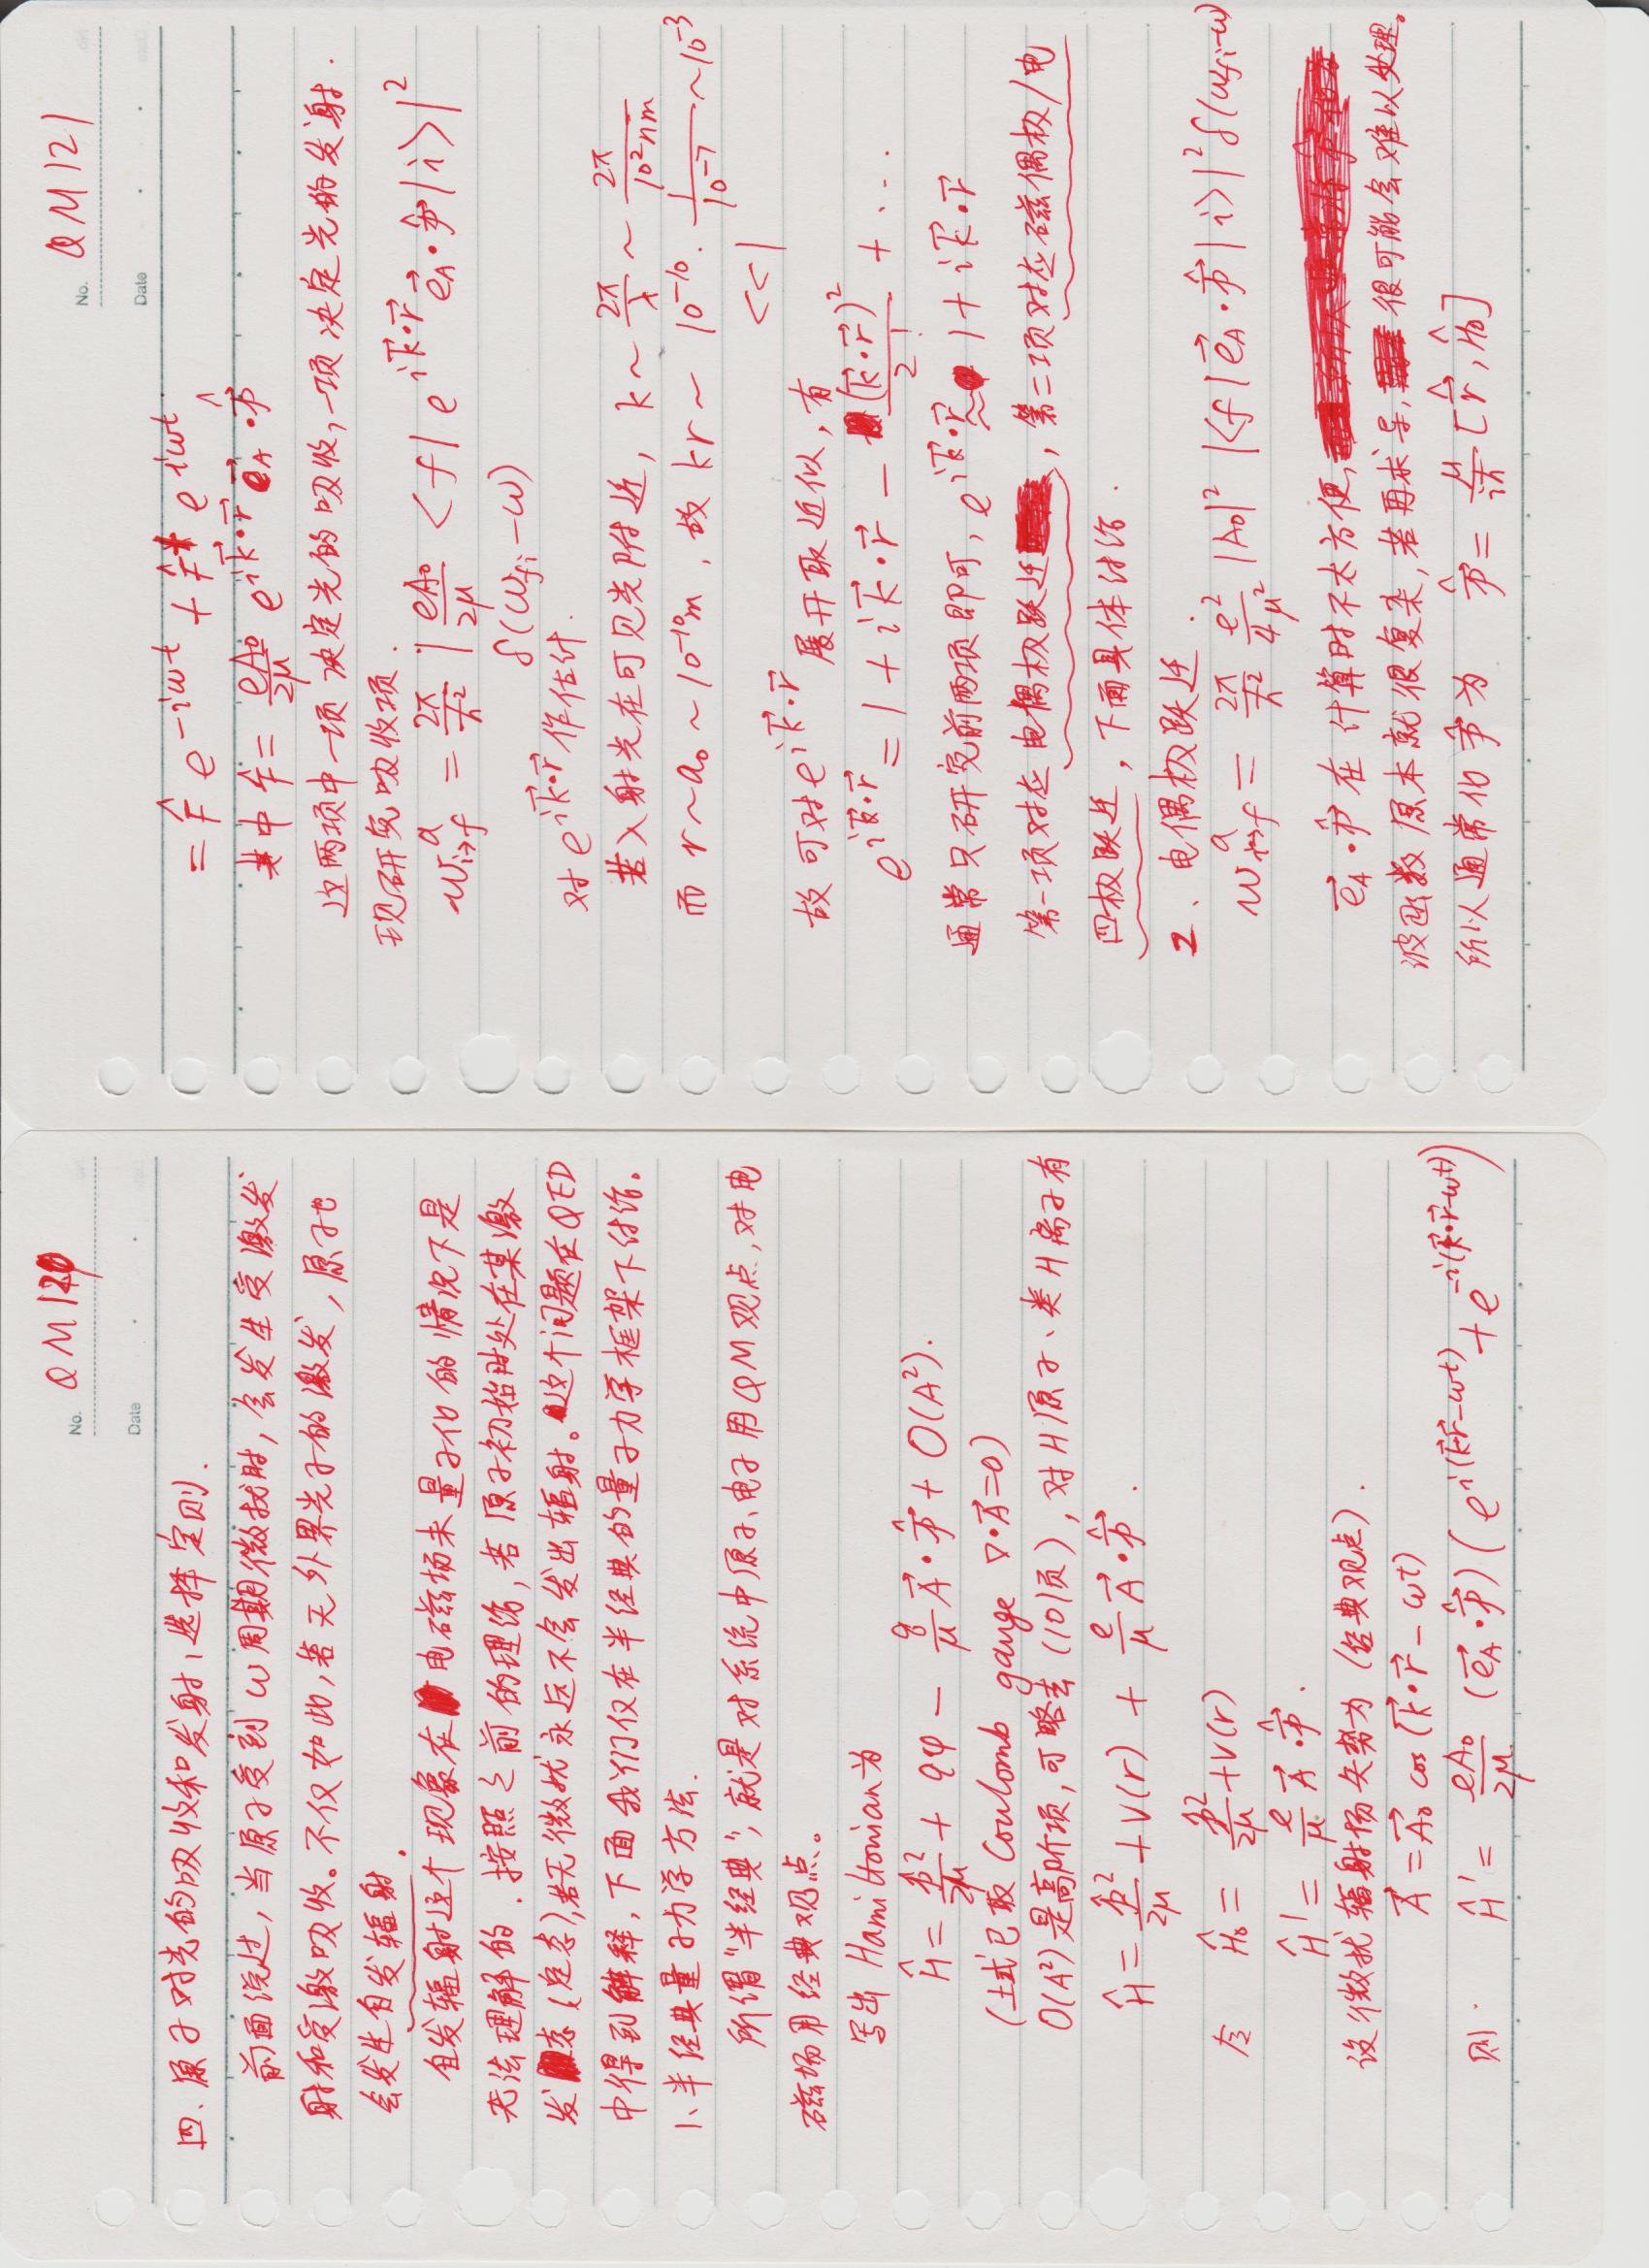 No. QM120
Date
四.原子对光的吸收和发射,选择定则.
前面说过,当原子受到ω周期微扰时,会发生受激发
射和受激吸收。不仅如此,若无外界光子的激发,原子也
会发生自发辐射.
自发辐射这个现象在电磁场未量子化的情况下是
无法理解的.按照之前的理论,若原子初始时处在某激
发态(定态),若无微扰永远不会发出辐射。这个问题在QED
中得到解释,下面我们仅在半经典的量子力学框架下讨论。
1、半经典量子力学方法.
所谓"半经典",就是对系统中原子、电子用QM观点,对电
磁场用经典观点。
写出Hamiltonian为
Ĥ = p̂²/2μ + qφ − q/μ A⃗·p̂⃗ + O(A²).
(上式已取 Coulomb gauge ∇·A⃗=0)
O(A²)是高阶项,可略去(101页),对H原子、类H离子有
Ĥ = p̂²/2μ + V(r) + e/μ A⃗·p̂⃗.
令 Ĥ₀ = p̂²/2μ + V(r)
Ĥ' = e/μ A⃗·p̂⃗.
设微扰辐射场矢势为(经典观点).
A⃗ = A⃗₀ cos(k⃗·r⃗ − ωt)
则. Ĥ' = eA₀/2μ (e⃗_A·p̂⃗)(e^{i(k⃗·r⃗−ωt)} + e^{−i(k⃗·r⃗−ωt)})
No. QM121
Date
= F̂ e^{−iωt} + F̂† e^{iωt}.
其中 F̂ = eA₀/2μ e^{ik⃗·r⃗} e⃗_A·p̂⃗
这两项中一项决定光的吸收,一项决定光的发射.
现研究吸收项.
w^a_{i→f} = 2π/ħ² |eA₀/2μ <f| e^{ik⃗·r⃗} e⃗_A·p̂⃗ |i>|²
δ(ω_{fi}−ω)
对e^{ik⃗·r⃗}作估计.
若入射光在可见光附近, k ~ 2π/λ ~ 2π/10²nm
而 r ~ a₀ ~ 10⁻¹⁰m, 故 kr ~ 10⁻¹⁰·1/10⁻⁷ ~ 10⁻³
<<1
故可对e^{ik⃗·r⃗}展开取近似,有
e^{ik⃗·r⃗} = 1 + ik⃗·r⃗ − (k⃗·r⃗)²/2! + ...
通常只研究前两项即可, e^{ik⃗·r⃗} ≈ 1 + ik⃗·r⃗
第一项对应电偶极跃迁,第二项对应磁偶极/电
四极跃迁,下面具体讨论.
2、电偶极跃迁.
w^a_{i→f} = 2π/ħ² e²/4μ² |A₀|² |<f|e⃗_A·p̂⃗|i>|² δ(ω_{fi}−ω)
e⃗_A·p̂⃗在计算时不太方便,
波函数原本就很复杂,若再求导,很可能会难以处理。
所以通常化p̂⃗为 p̂⃗ = μ/iħ [r̂⃗, Ĥ₀]